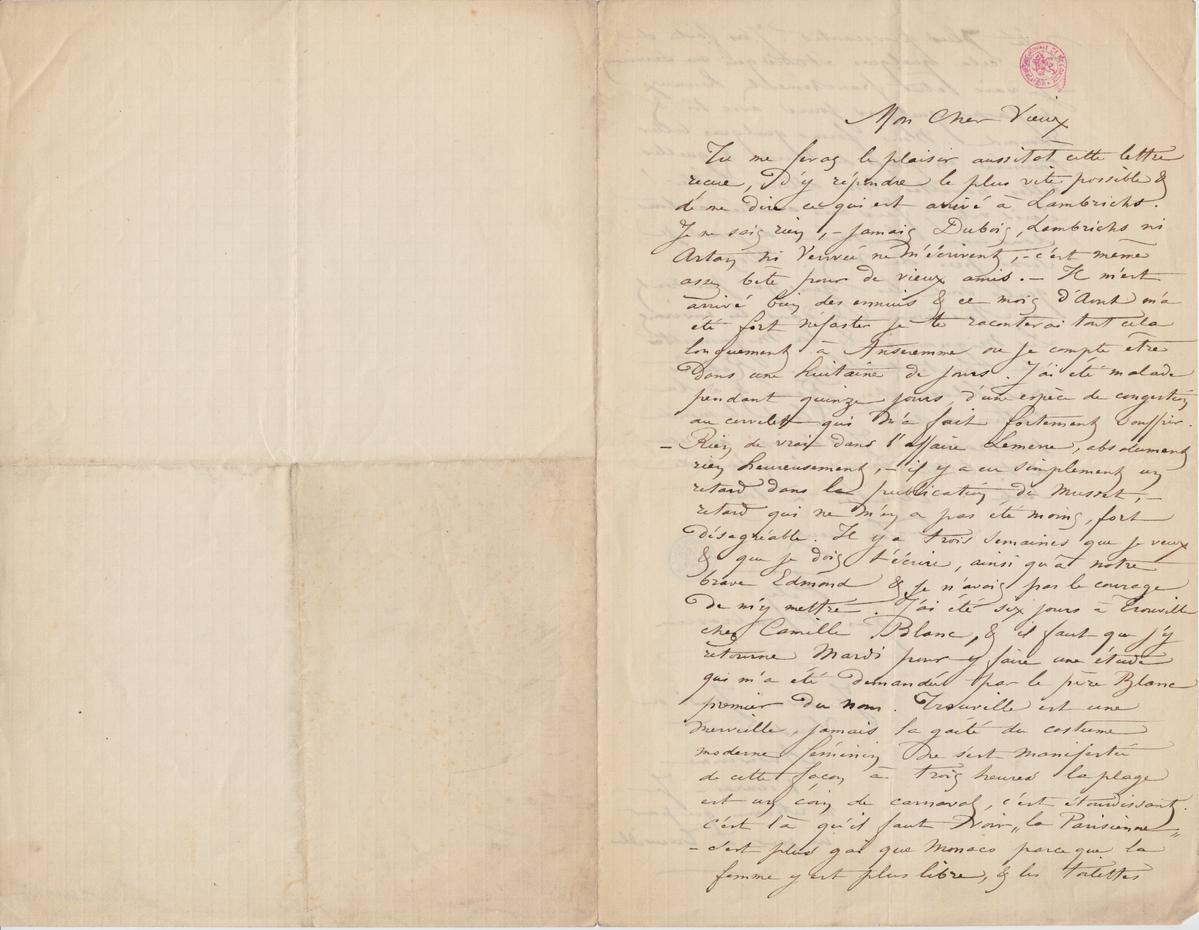 Mon Cher Vieux
Tu me feras le plaisir aussitôt cette lettre
recue, d'y répondre le plus vite possible &
de me dire ce qui est arrivé à Lambrichs.
Je ne sais rien, – jamais Dubois, Lambrichs ni
Artan ni Verwée ne m'écrivent, – c'est même
assez bête pour de vieux amis. – Il m'est
arrivé bien des ennuis & ce mois d'Aout m'a
été fort néfaste, je te raconterai tout cela
longuement à Anseremme ou je compte être
dans une huitaine de jours. J'ai été malade
pendant quinze jours, d'une espèce de congestion
au cervelet qui m'a fait fortement souffrir.
– Rien de vrai dans l'affaire Lemerre, absolument
rien heureusement, – il y a eu simplement un
retard dans la publication du Musset, –
retard qui ne m'en a pas été moins, fort
désagréable. Il y a trois semaines que je veux
& que je dois t'écrire, ainsi qu'à notre
brave Edmond & je n'avais pas le courage
de m'y mettre. J'ai été six jours à Trouville
chez Camille Blanc, & il faut que j'y
retourne Mardi pour y faire une étude
qui m'a été demandée par le père Blanc
premier du nom. Trouville est une
merveille, jamais la gaité du costume
moderne féminin ne s'est manifestée
de cette façon à trois heures la plage
est un coin de carnaval, c'est étourdissant.
c'est là qu'il faut voir „la Parisienne"
– c'est plus gai que Monaco parce que la
femme y est plus libre, & les toilettes